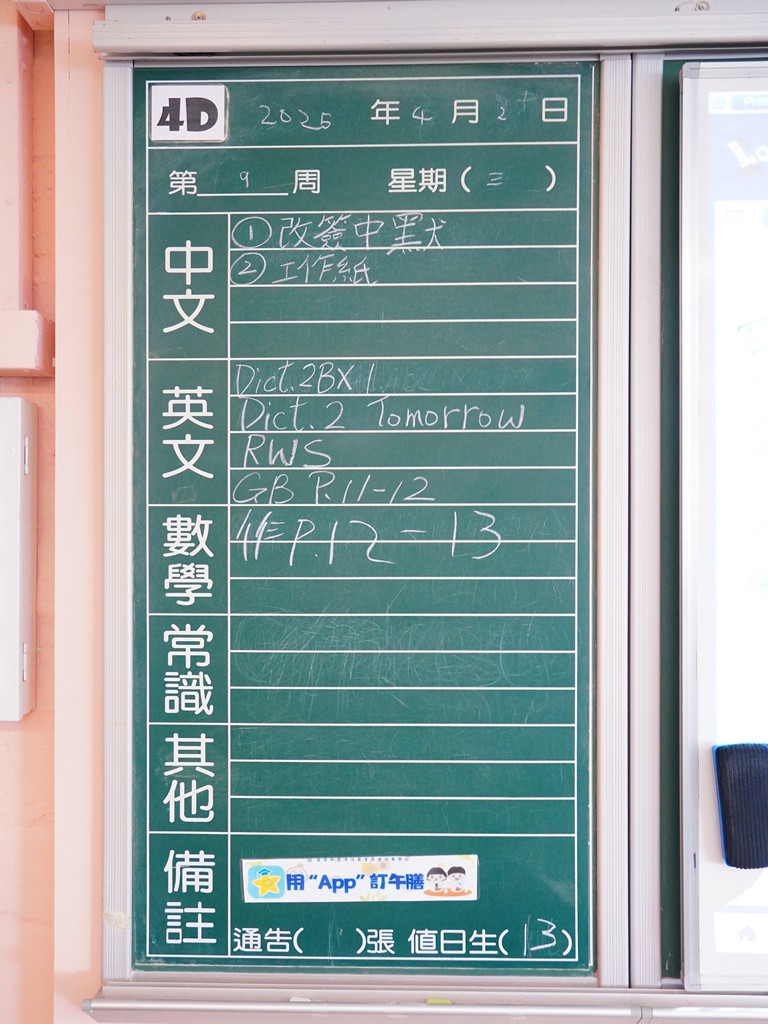 4D 2025 年 4 月 2 日
第 9 周 星期 ( 三 )
中文
① 改簽中默
② 工作紙
英文
Dict. 2B X 1
Dict. 2 Tomorrow
RWS
GB P.11-12
數學
作 P.12-13
常識
其他
備註
用 “App” 訂午膳
通告( 1 )張 值日生( 13 )